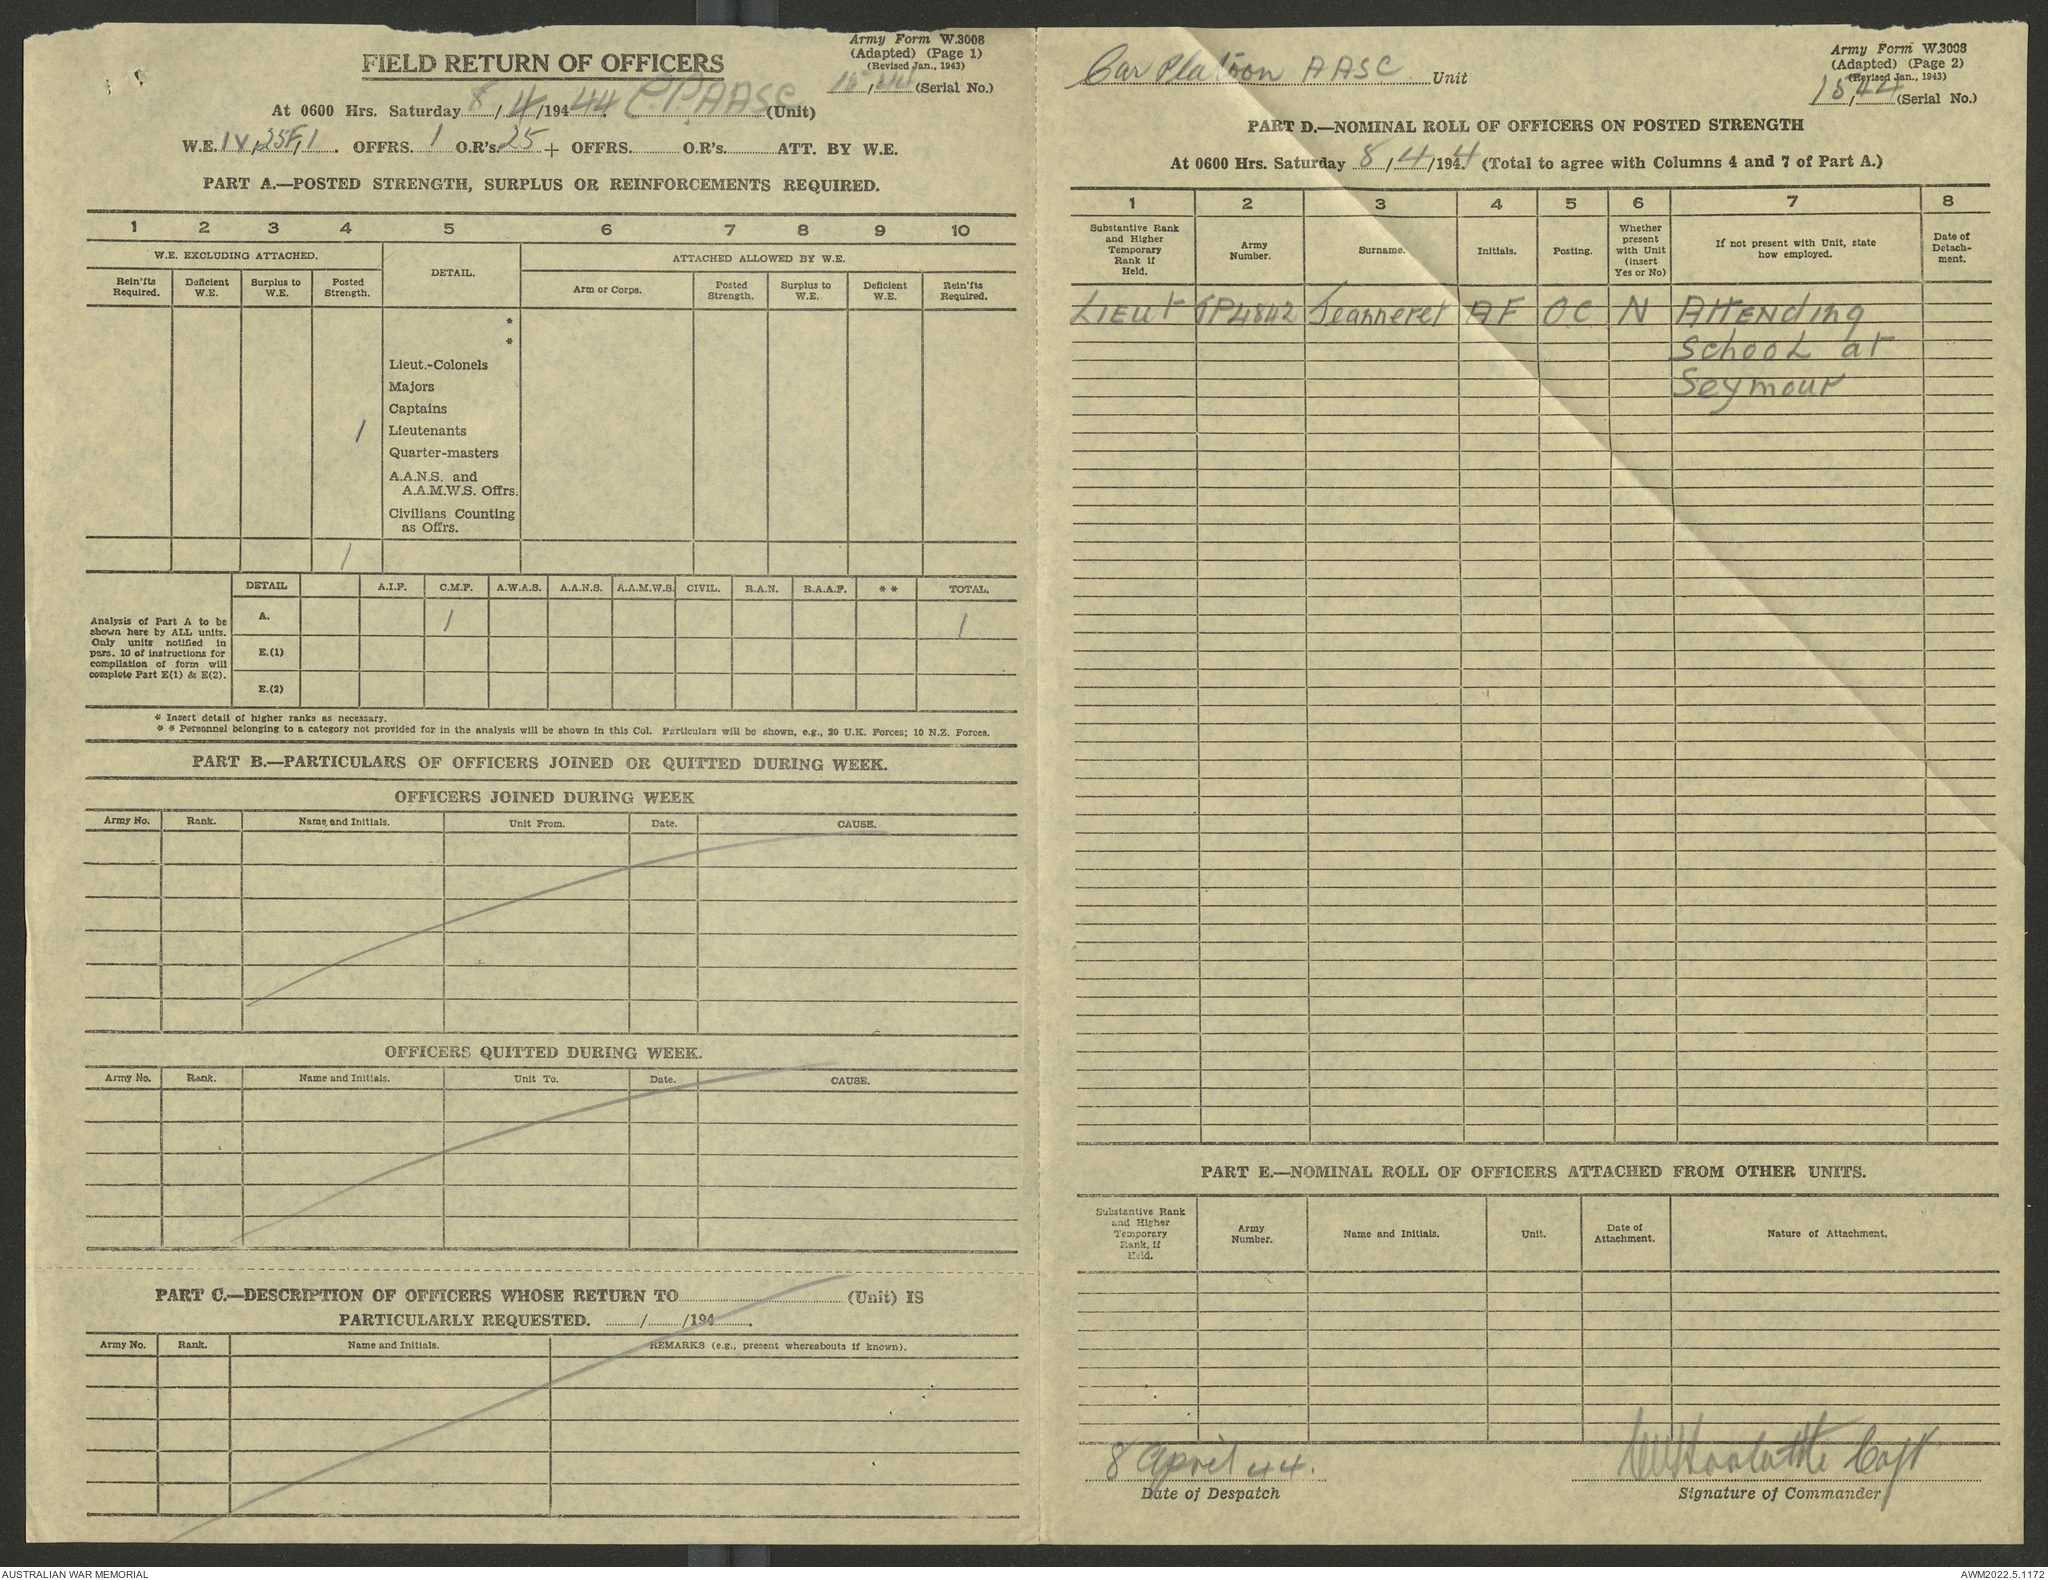 Army Form W.3008
(Adapted) (Page 1)
(Revised Jan., 1943)
15, 44 (Serial No.)
FIELD RETURN OF OFFICERS
At 0600 Hrs. Saturday 8/4/1944. C.P. AASC (Unit)
W.E. IV, 25F, 1. OFFRS. 1 O.R's. 25 + OFFRS. O.R's. ATT. BY W.E.
PART A.—POSTED STRENGTH, SURPLUS OR REINFORCEMENTS REQUIRED.
1 2 3 4 5 6 7 8 9 10
W.E. EXCLUDING ATTACHED. DETAIL. ATTACHED ALLOWED BY W.E.
Rein'fts Required. Deficient W.E. Surplus to W.E. Posted Strength. Arm or Corps. Posted Strength. Surplus to W.E. Deficient W.E. Rein'fts Required.
*
*
Lieut.-Colonels
Majors
Captains
1 Lieutenants
Quarter-masters
A.A.N.S. and
A.A.M.W.S. Offrs.
Civilians Counting
as Offrs.
1
DETAIL A.I.F. C.M.F. A.W.A.S. A.A.N.S. A.A.M.W.S. CIVIL. R.A.N. R.A.A.F. * * TOTAL.
Analysis of Part A to be
shown here by ALL units.
Only units notified in
para. 10 of instructions for
compilation of form will
complete Part E(1) & E(2).
A. 1 1
E.(1)
E.(2)
* Insert detail of higher ranks as necessary.
* * Personnel belonging to a category not provided for in the analysis will be shown in this Col. Particulars will be shown, e.g., 20 U.K. Forces; 10 N.Z. Forces.
PART B.—PARTICULARS OF OFFICERS JOINED OR QUITTED DURING WEEK.
OFFICERS JOINED DURING WEEK
Army No. Rank. Name and Initials. Unit From. Date. CAUSE.
OFFICERS QUITTED DURING WEEK.
Army No. Rank. Name and Initials. Unit To. Date. CAUSE.
PART C.—DESCRIPTION OF OFFICERS WHOSE RETURN TO (Unit) IS
PARTICULARLY REQUESTED. / /194 .
Army No. Rank. Name and Initials. REMARKS (e.g., present whereabouts if known).
Car Platoon AASC Unit
Army Form W.3008
(Adapted) (Page 2)
(Revised Jan., 1943)
15, 44 (Serial No.)
PART D.—NOMINAL ROLL OF OFFICERS ON POSTED STRENGTH
At 0600 Hrs. Saturday 8/4/1944 (Total to agree with Columns 4 and 7 of Part A.)
1 2 3 4 5 6 7 8
Substantive Rank and Higher Temporary Rank if Held. Army Number. Surname. Initials. Posting. Whether present with Unit (insert Yes or No) If not present with Unit, state how employed. Date of Detachment.
LIEUT TP4842 Jeanneret AF OC N Attending
School at
Seymour
PART E.—NOMINAL ROLL OF OFFICERS ATTACHED FROM OTHER UNITS.
Substantive Rank and Higher Temporary Rank, if Held. Army Number. Name and Initials. Unit. Date of Attachment. Nature of Attachment.
8 April 44.
Capt
Date of Despatch
Signature of Commander
AUSTRALIAN WAR MEMORIAL
AWM2022.5.1172